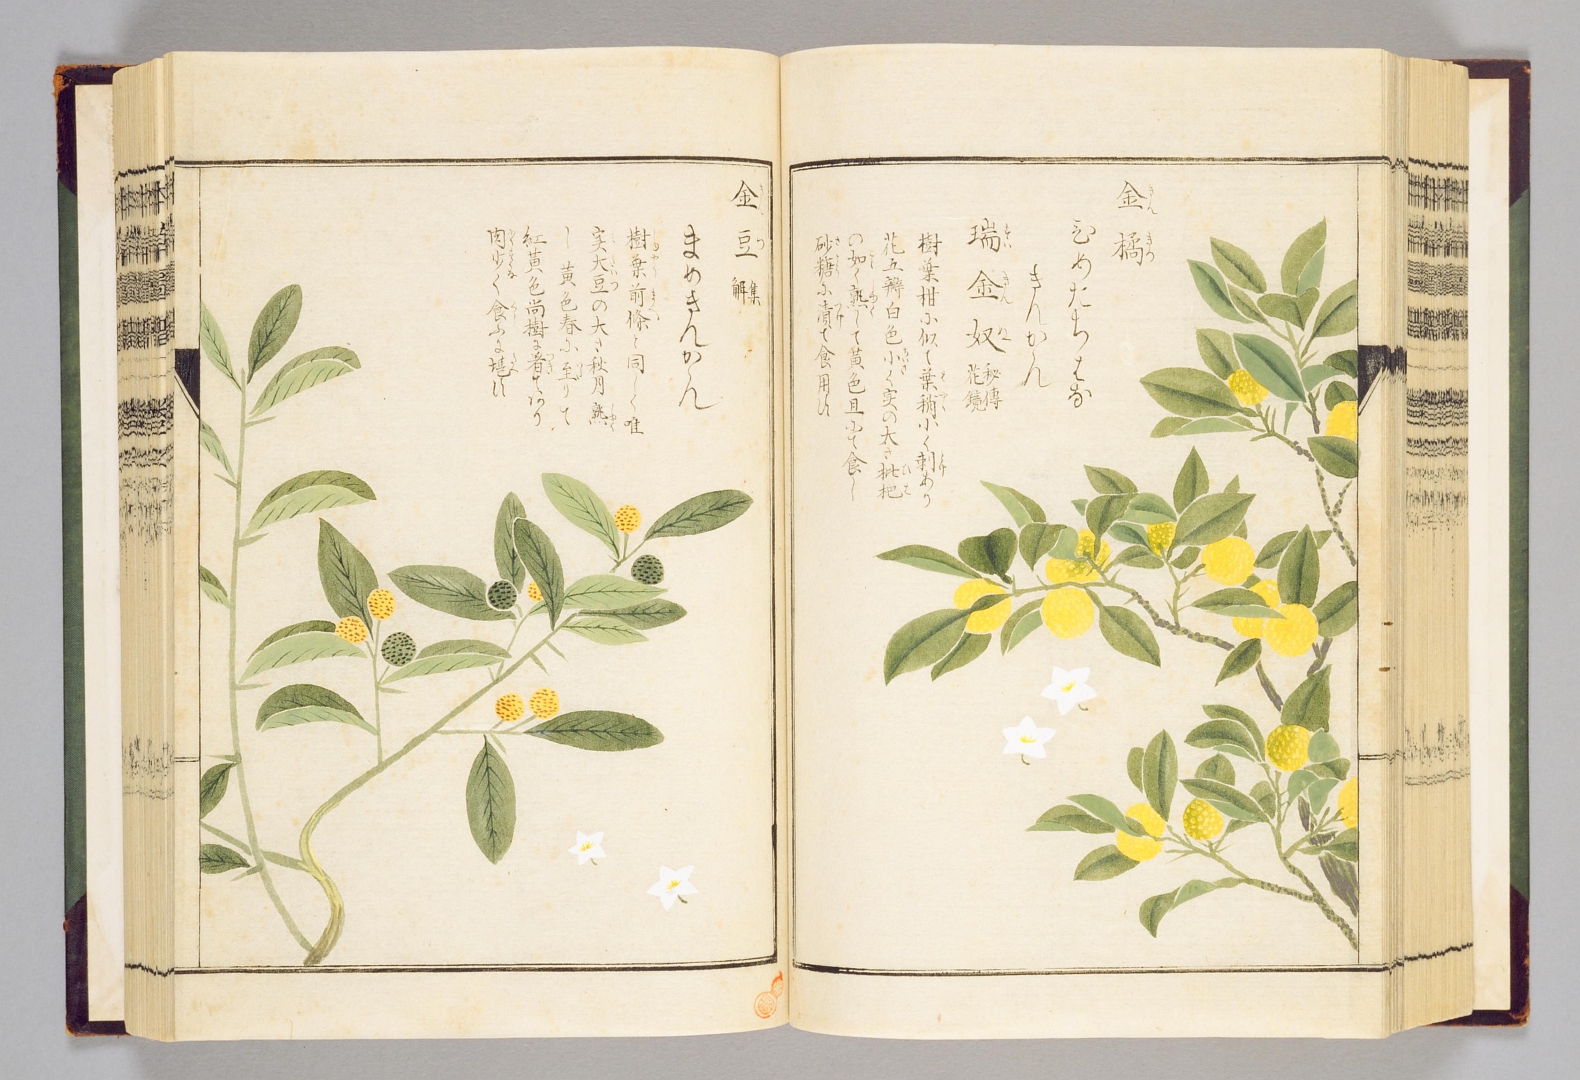 金橘
ひめたちはな
きんかん
瑞金奴 秘傳花鏡
樹葉柑に似て葉稍小く刺あり
花五瓣白色小く実の大さ枇杷
の如く熟して黄色且つ食し
砂糖に漬て食用ひ
金豆 集解
まめきんかん
樹葉前條と同しく唯
実大豆の大さ秋月熟
し黄色春に至りて
紅黄色尚樹に着てあり
肉少く食ふに堪ひ